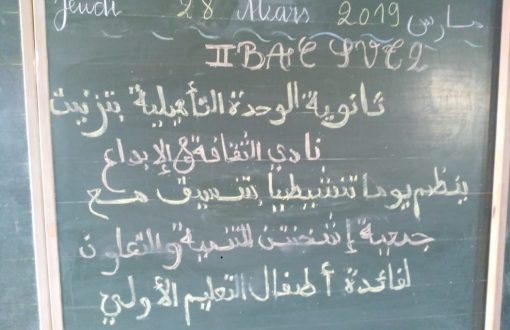 Jeudi 28 Mars 2019 مارس
II BAC SVT 2
ثانوية الوحدة التأهيلية بتزنيت
نادي الثقافة و الإبداع
ينظم يوما تنشيطيا بتنسيق مع
جمعية إشخنتن للتنمية والتعاون
لفائدة أطفال التعليم الأولي